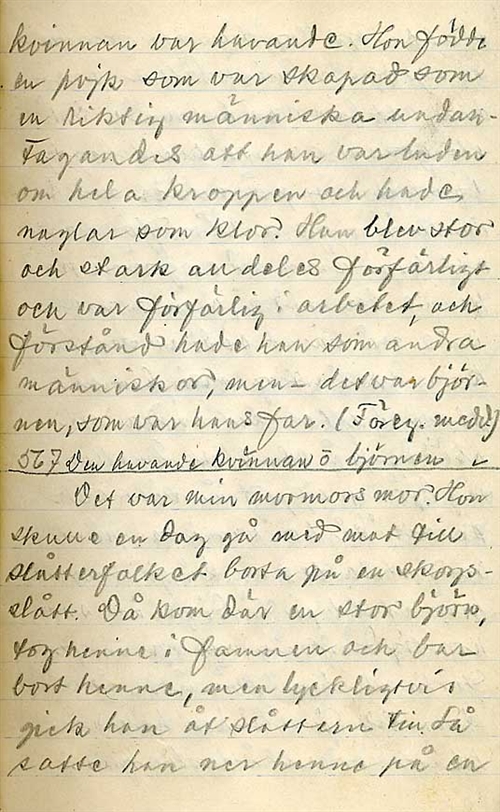 kvinnan var havande. Hon födde
en pojk som var skapad som
en riktig människa undan-
tagandes att han var luden
om hela kroppen och hade
naglar som klor. Han blev stor
och stark andeles förfärligt
och var förfärlig i arbetet, och
förstånd hade han som andra
människor, men – det var björ-
nen, som var hans far. (Föreg. medd.)
567 Den havande kvinnan o björnen
Det var min mormors mor. Hon
skulle en dag gå med mat till
slåtterfolket borta på en skogs-
slått. Då kom där en stor björn,
tog henne i famnen och bar
bort henne, men lyckligtvis
gick han åt slåttern till. Så
satte han ner henne på en